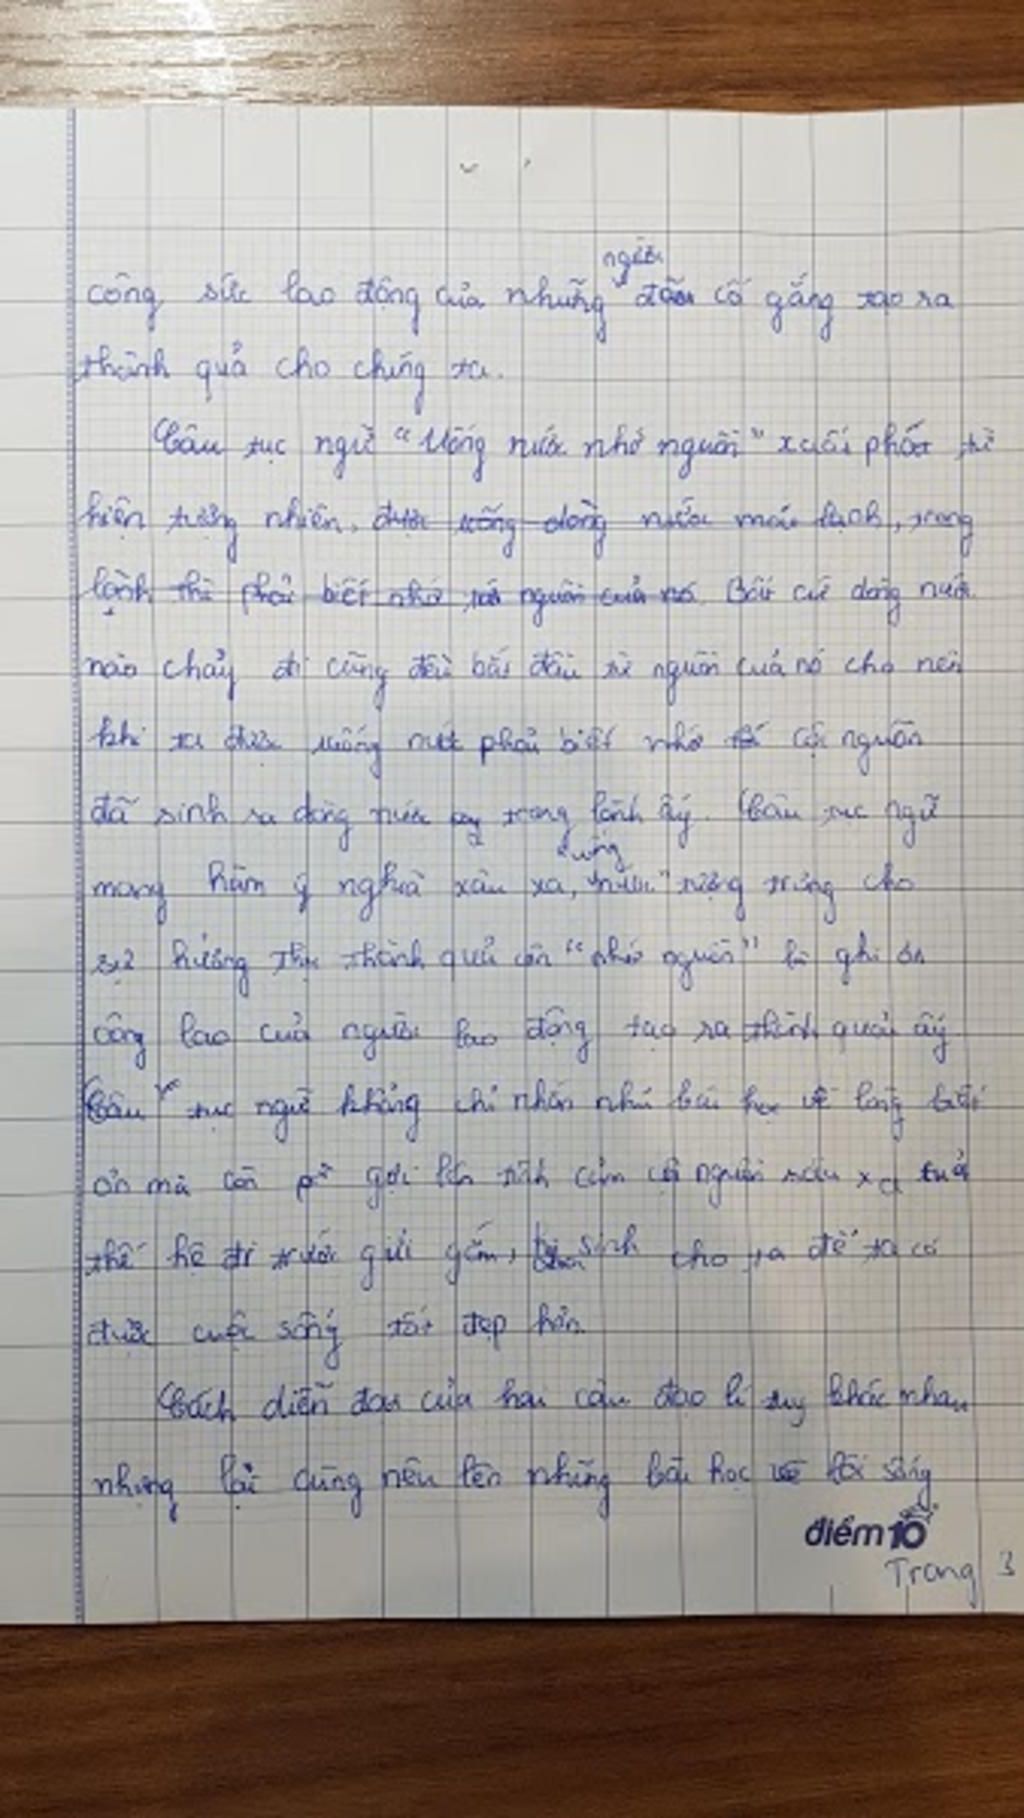 công sức lao động của những người đã cố gắng tạo ra
thành quả cho chúng ta.
Câu tục ngữ "Uống nước nhớ nguồn" xuất phát từ
hiện tượng nhiên, được uống dòng nước mát lành, trong
lành thì phải biết nhớ tới nguồn của nó. Bất cứ dòng nước
nào chảy đi cũng đều bắt đầu từ nguồn của nó cho nên
khi ta được uống nước phải biết nhớ cội nguồn
đã sinh ra dòng nước trong lành ấy. Câu tục ngữ
mang hàm ý nghĩa xâu xa, "uống nước" tượng trưng cho
sự hưởng thụ thành quả còn "nhớ nguồn" là ghi ơn
công lao của người lao động tạo ra thành quả ấy
Câu tục ngữ không chỉ nhắn nhủ bài học về lòng biết
ơn mà còn gợi lên tình cảm cội nguồn sâu xa
thế hệ đi trước gửi gắm, sinh cho ra để ta có
được cuộc sống tốt đẹp hơn.
Cách diễn đạt của hai câu đạo lí tuy khác nhau
nhưng lại cùng nêu lên những bài học về lối sống
điểm 10
Trang 3